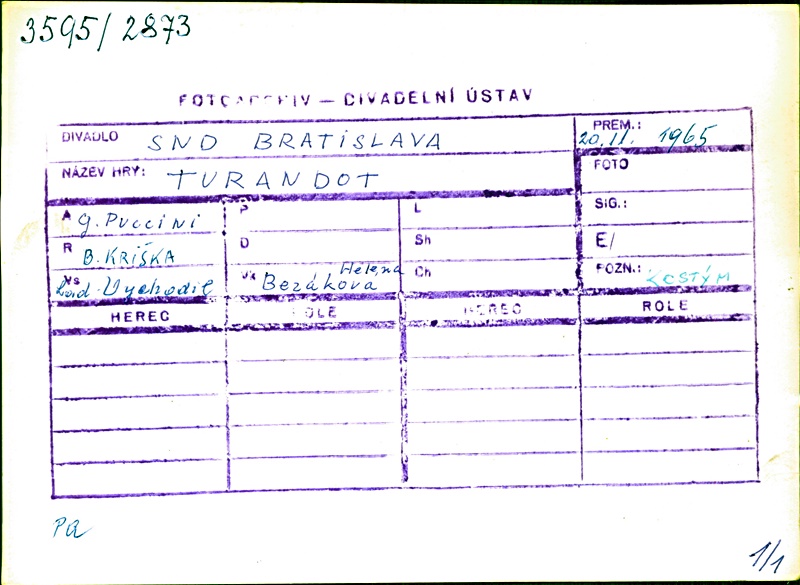 3595/2873
FOTOARCHIV — DIVADELNÍ ÚSTAV
DIVADLO SND BRATISLAVA
PREM.: 20.11. 1965
NÁZEV HRY: TURANDOT
FOTO
A G. PUCCINI
P
L
SIG.:
R B. KRIŠKA
D
Sh
E/
Vs Lad. Vychodil
Vk Helena Bezáková
Ch
POZN.: KOSTÝM
HEREC ROLE HEREC ROLE
Pa
1/1